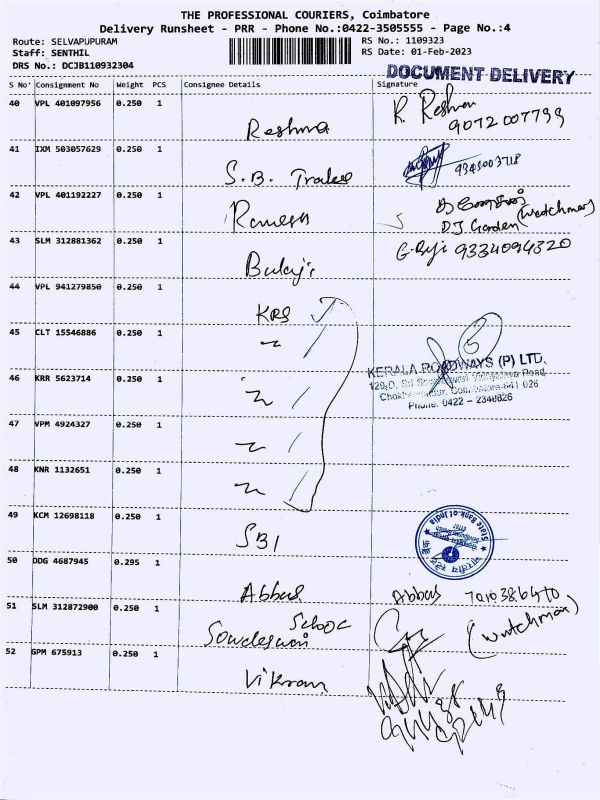 THE PROFESSIONAL COURIERS, Coimbatore
Delivery Runsheet - PRR - Phone No.:0422-3505555 - Page No.:4
Route: SELVAPUPURAM
Staff: SENTHIL
DRS No.: DCJB110932304
RS No.: 1109323
RS Date: 01-Feb-2023
DOCUMENT DELIVERY
S No Consignment No Weight PCS Consignee Details Signature
40 VPL 401097956 0.250 1 Reshma R. Reshma
9072007799
41 IXM 503057629 0.250 1 S.B. Trades
42 VPL 401192227 0.250 1 Ramesh
DJ Garden (Watchman)
43 SLM 312881362 0.250 1 Balaji G. Balaji 9334094320
44 VPL 941279850 0.250 1 KRS
45 CLT 15546886 0.250 1
46 KRR 5623714 0.250 1
47 VPM 4924327 0.250 1
48 KNR 1132651 0.250 1
KERALA ROADWAYS (P) LTD.
Coimbatore-641 026
Phone: 0422 - 2348826
49 KCM 12698118 0.250 1 SBI
State Bank of India
50 DDG 4687945 0.295 1 Abbas Abbas
51 SLM 312872900 0.250 1 School
(Watchman)
52 GPM 675913 0.250 1 Vikram